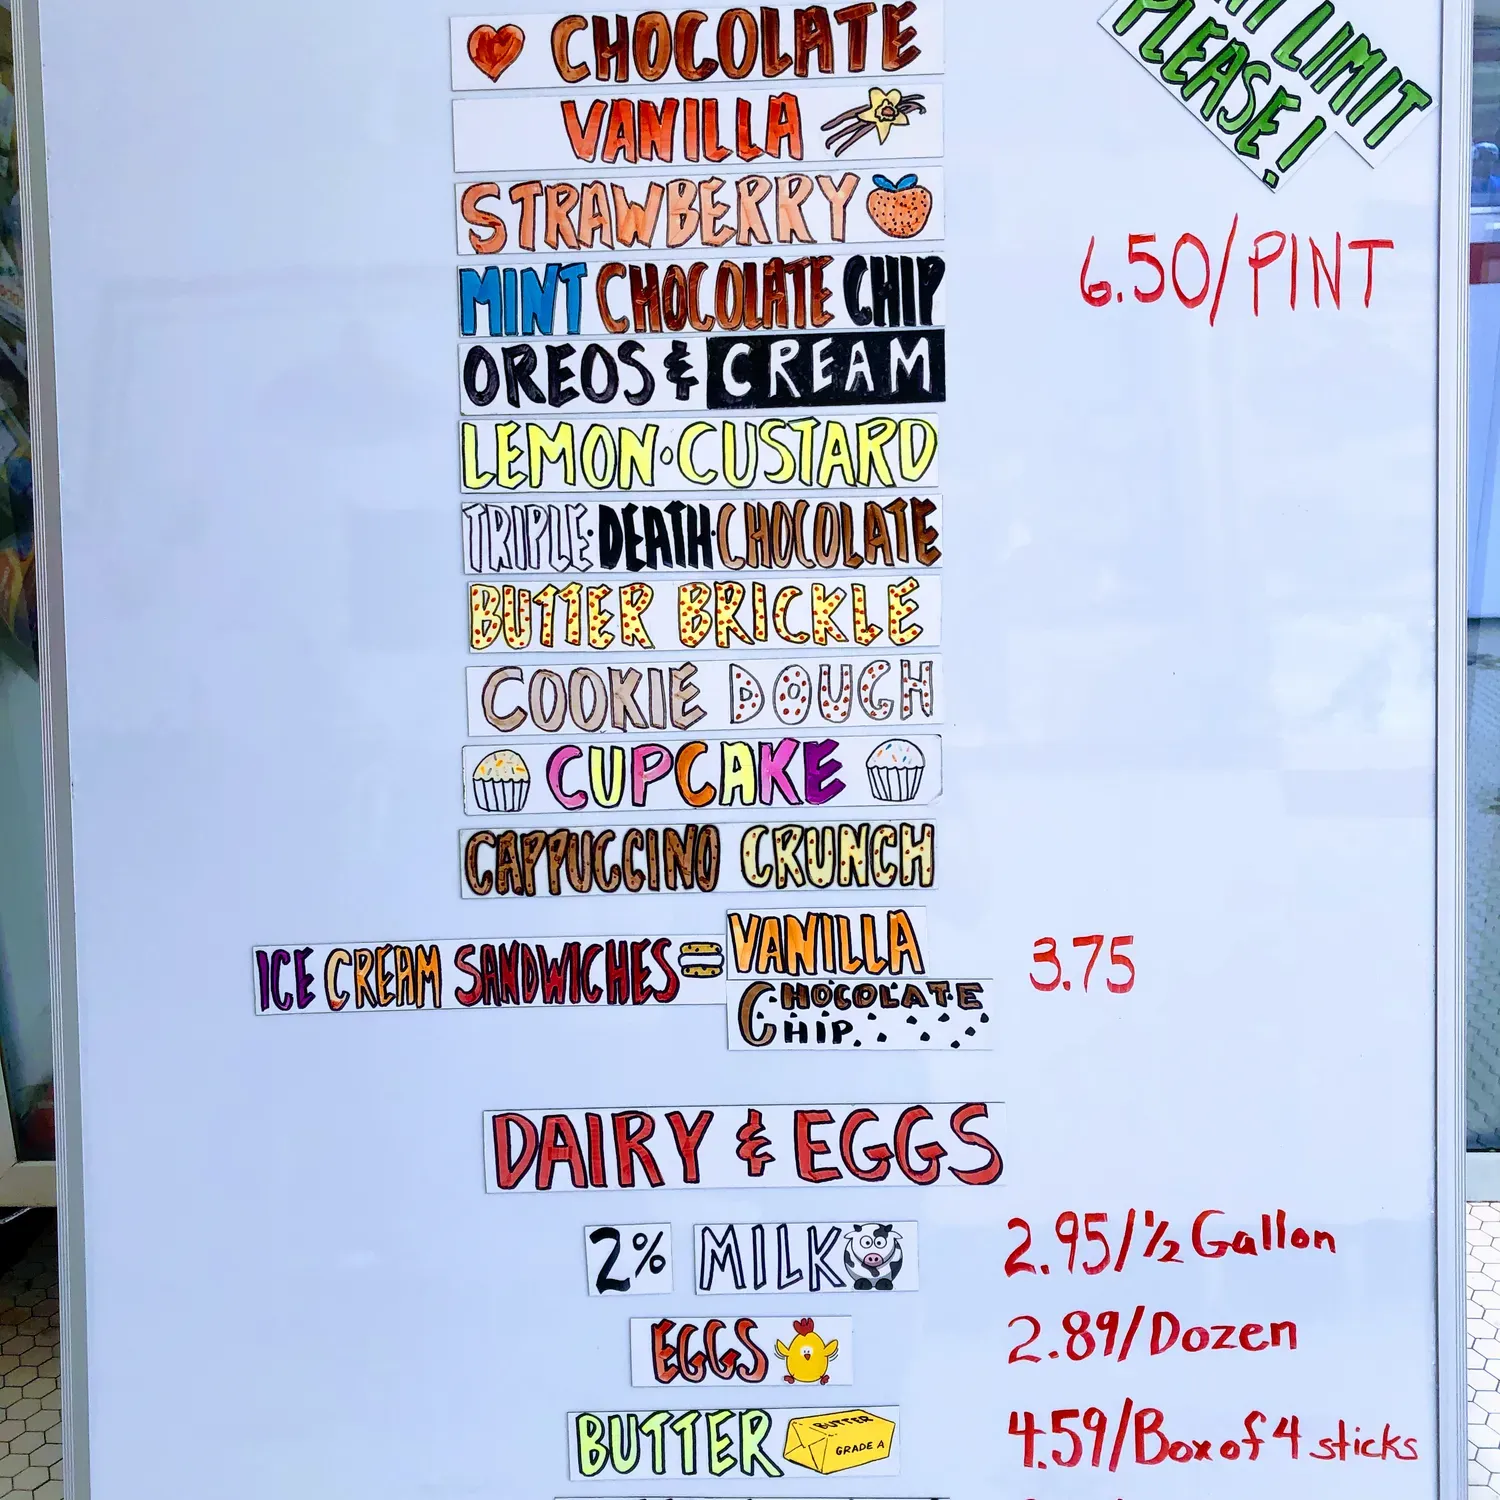 CHOCOLATE
LIMIT
PLEASE!
VANILLA
STRAWBERRY
6.50/PINT
MINT CHOCOLATE CHIP
OREOS & CREAM
LEMON·CUSTARD
TRIPLE·DEATH·CHOCOLATE
BUTTER BRICKLE
COOKIE DOUGH
CUPCAKE
CAPPUCCINO CRUNCH
ICE CREAM SANDWICHES = VANILLA 3.75
CHOCOLATE
CHIP
DAIRY & EGGS
2% MILK 2.95/½ Gallon
EGGS 2.89/Dozen
BUTTER BUTTER GRADE A 4.59/Box of 4 sticks